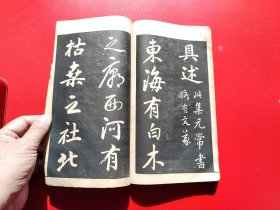 具述
此集元常書
東海有白木
之廟西河有
枯桑之社北